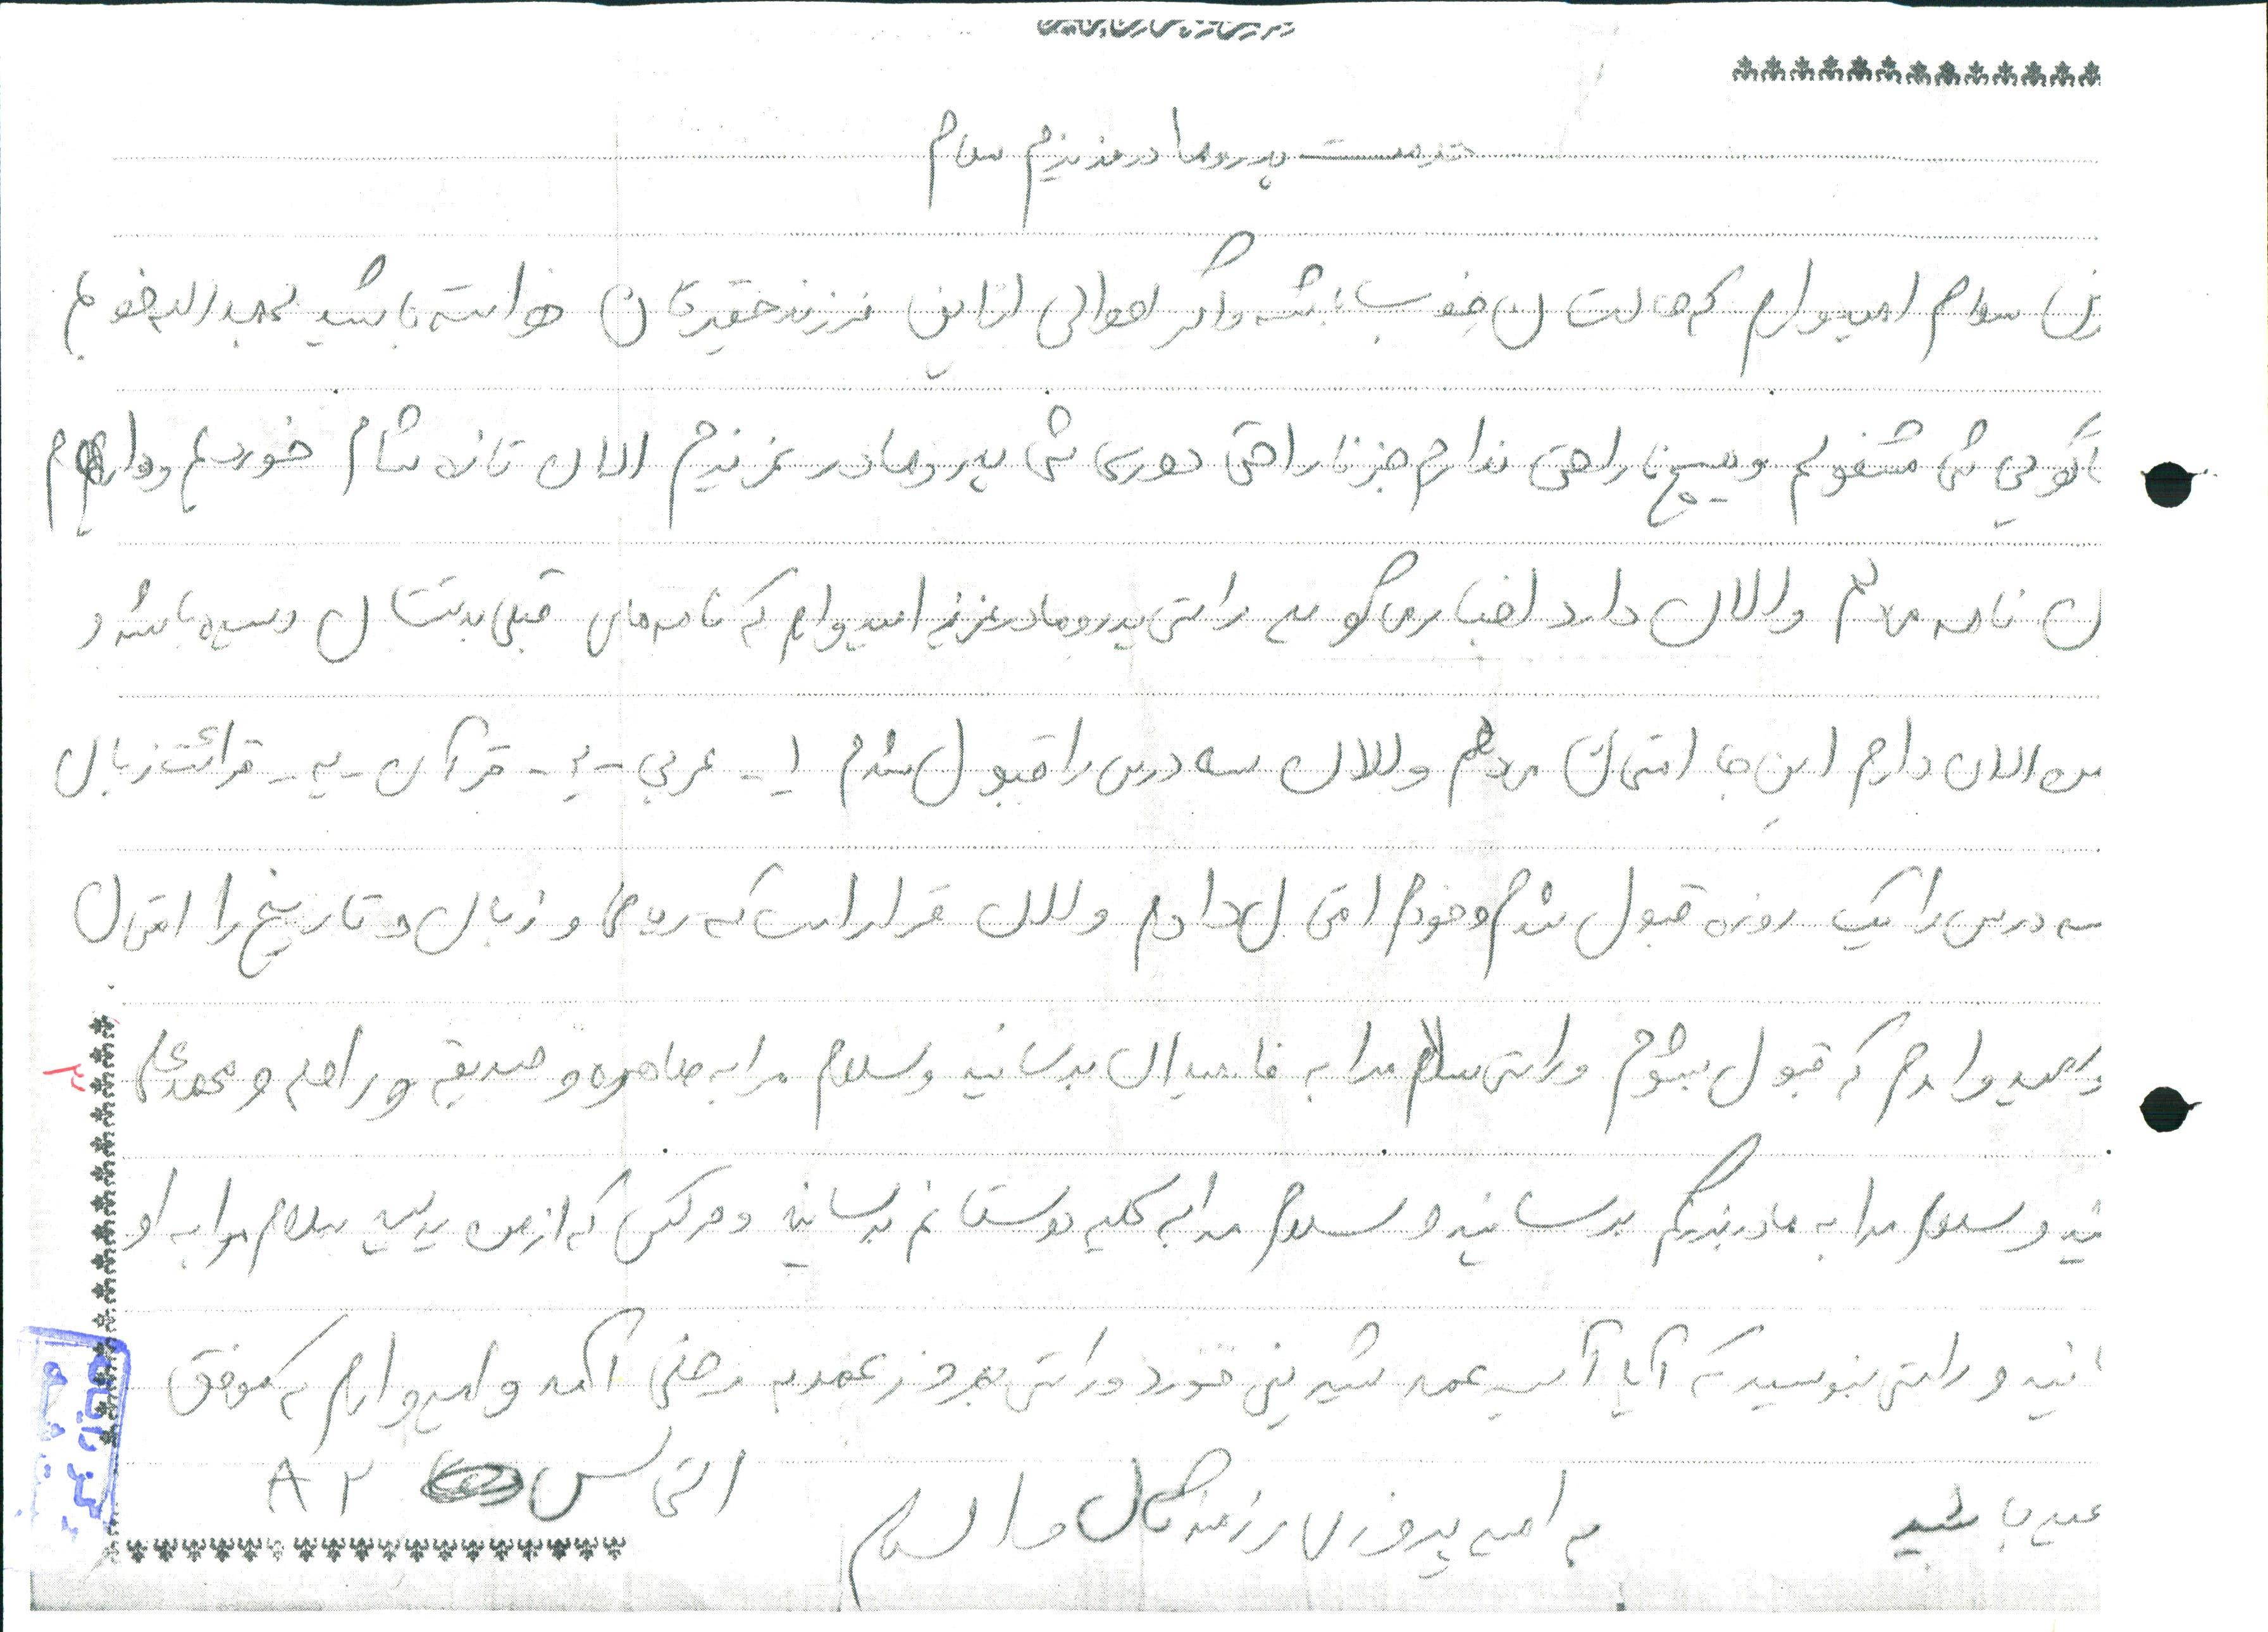 خدمت پدر و مادر عزیزم سلام
سلام امیدوارم که حالتان خوب باشد واگر احوالی از این فرزند حقیرتان خواسته باشید بحمدالله خوبم
گویی شما مشغولم وهیچ ناراحتی ندارم جز ناراحتی دوری شما پدر ومادر عزیزم الان تازه شام خوردیم ودارم
ن نامه می‌دهم والان دارد اخبار می‌گوید راستی پدر ومادر عزیز امیدوارم که نامه‌های قبلی بدستتان رسیده باشد و
الان دارم این جا امتحان میدهم والان سه درس را قبول شدم ۱- عربی -۲- قرآن -۳- قرائت زبان
سه درس را یک روزه قبول شدم وخودم امتحان دادم والان قرار است که ریاضی و زبان و تاریخ را امتحان
امیدوارم که قبول بشوم وراستی سلام مرا به فامیلان برسانید وسلام مرا به طاهره و صدیقه و راضیه و محمدعلی
نید وسلام مرا به مادربزرگم برسانید وسلام مرا به کلیه دوستانم برسانید وهر کس که از من پرسید سلام مرا به او
انید و راستی بنویسید که آیا آسیه عمه شیرینی خورد وراستی بهروز عمه به مرخصی آمد وامیدوارم که موفق
باشید به امید پیروزی رزمندگان والسلام التماس ۸۲